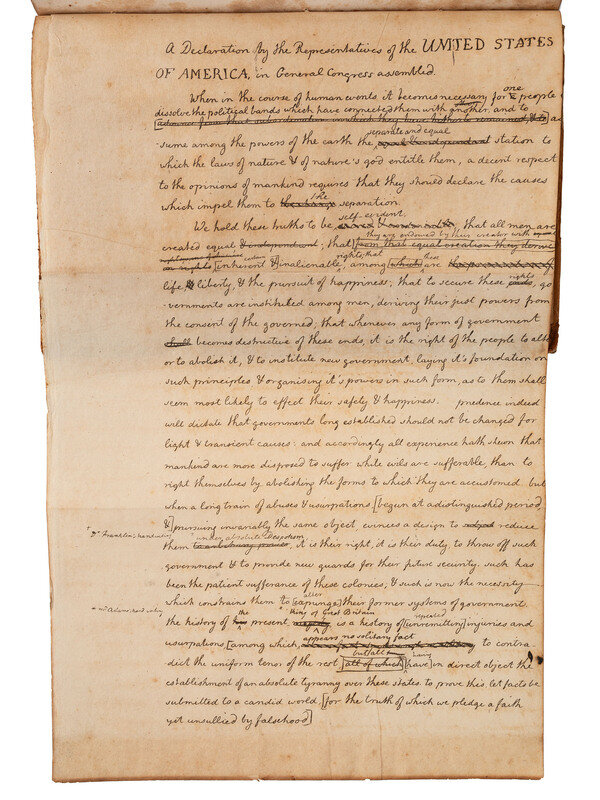 A Declaration by the Representatives of the UNITED STATES
OF AMERICA, in General Congress assembled.
When in the course of human events it becomes necessary for one people
dissolve the political bands which have connected them with another, and to
as-
separate and equal
sume among the powers of the earth the equal & independant station to
which the laws of nature & of nature's god entitle them, a decent respect
to the opinions of mankind requires that they should declare the causes
the
which impel them to the change separation.
self-evident,
We hold these truths to be sacred & undeniable; that all men are
they are endowed by their creator with
created equal & independant; that from that equal creation they derive
rights; that these
in rights inherent & inalienable, among which are the preservation of
rights
life, & liberty, & the pursuit of happiness; that to secure these ends, go
vernments are instituted among men, deriving their just powers from
the consent of the governed; that whenever any form of government
shall becomes destructive of these ends, it is the right of the people to alter
or to abolish it, & to institute new government, laying it's foundation on
such principles & organising it's powers in such form, as to them shall
seem most likely to effect their safety & happiness. prudence indeed
will dictate that governments long established should not be changed for
light & transient causes: and accordingly all experience hath shewn that
mankind are more disposed to suffer while evils are sufferable, than to
right themselves by abolishing the forms to which they are accustomed. but
when a long train of abuses & usurpations [begun at a distinguished period,
&] pursuing invariably the same object, evinces a design to reduce
* Dr. Franklin's handwriting
* under absolute Despotism
them to arbitrary power, it is their right, it is their duty, to throw off such
government & to provide new guards for their future security. such has
been the patient sufferance of these colonies; & such is now the necessity
alter
which constrains them to [expunge] their former systems of government.
* Mr. Adams' handwriting
the * King of Great Britain repeated
the history of his present majesty is a history of [unremitting] injuries and
appears no solitary fact
usurpations, [among which, to contra-
but all having
dict the uniform tenor of the rest, all of which] [have] in direct object the
establishment of an absolute tyranny over these states. to prove this, let facts be
submitted to a candid world, [for the truth of which we pledge a faith
yet unsullied by falsehood]